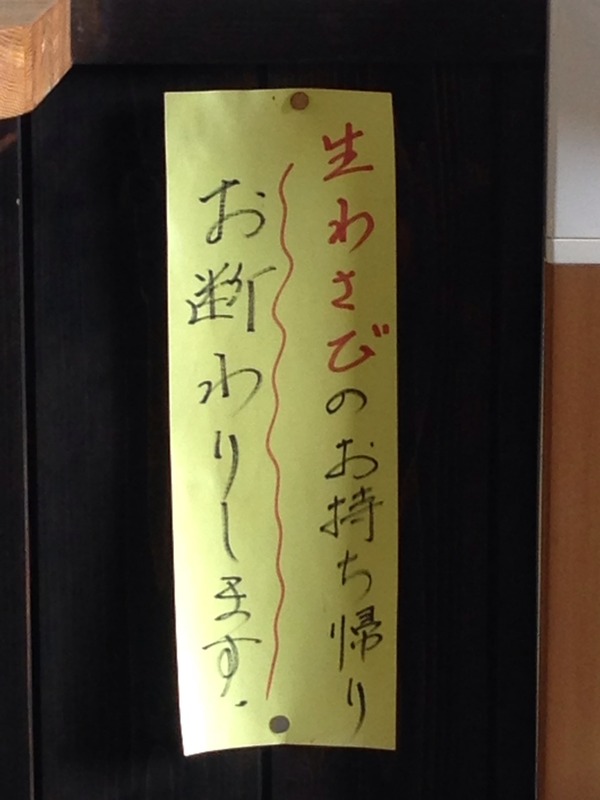 生わさびのお持ち帰り
お断わりします.